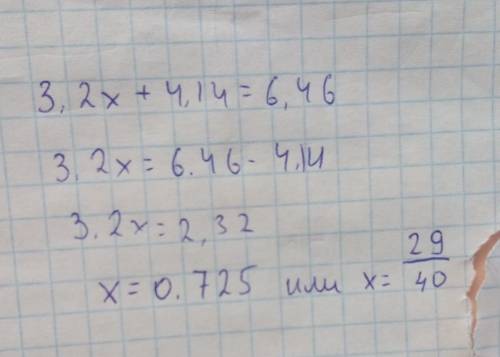 3,2x + 4,14 = 6,46
3,2x = 6.46 - 4,14
3.2x = 2,32
x = 0.725 или x = 29/40